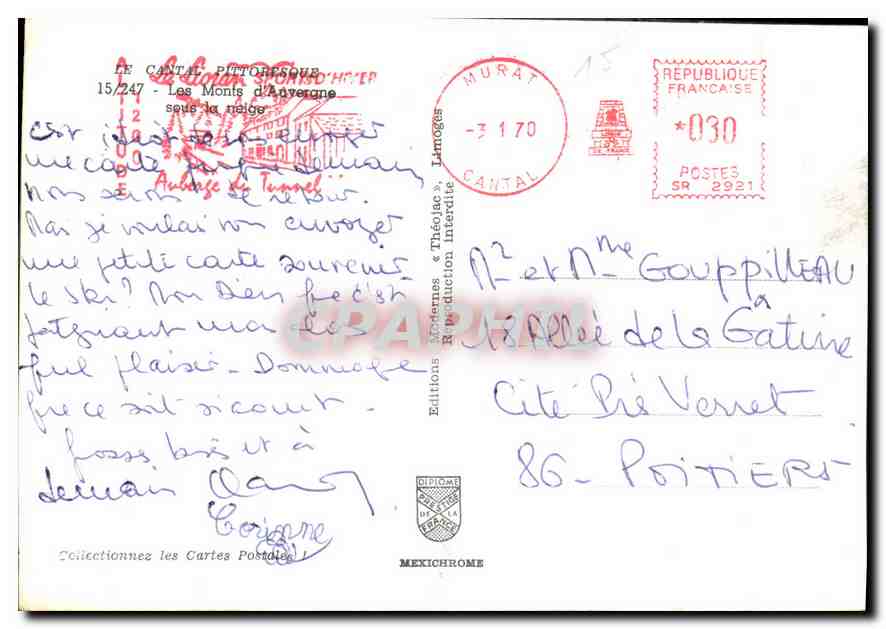 LE CANTAL PITTORESQUE
15/247 - Les Monts d'Auvergne
sous la neige
Le Lioran SPORTS D'HIVER
ALTITUDE 1200
Auberge du Tunnel
MURAT
-3 1 70
CANTAL
15
REPUBLIQUE
FRANCAISE
*030
POSTES
SR 2921
c'est envoyer
une carte demain
nous serons de retour.
Mai je voulai vou envoyer
une petite carte souvenir.
le ski? Mon Dieu que c'est
fatiguant mai
quel plaisir - Dommage
que ce soit si court -
grosses bises et à
demain
Corinne
Collectionnez les Cartes Postales !
Editions Modernes « Théojac », Limoges
Reproduction interdite
CPAPHIL
DIPLOME
PRESTIGE
DE LA
FRANCE
MEXICHROME
Mr et Mme GOUPPILLEAU
18 Allée de la Gâtine
Cité Pré Verret
86 - POITIERS